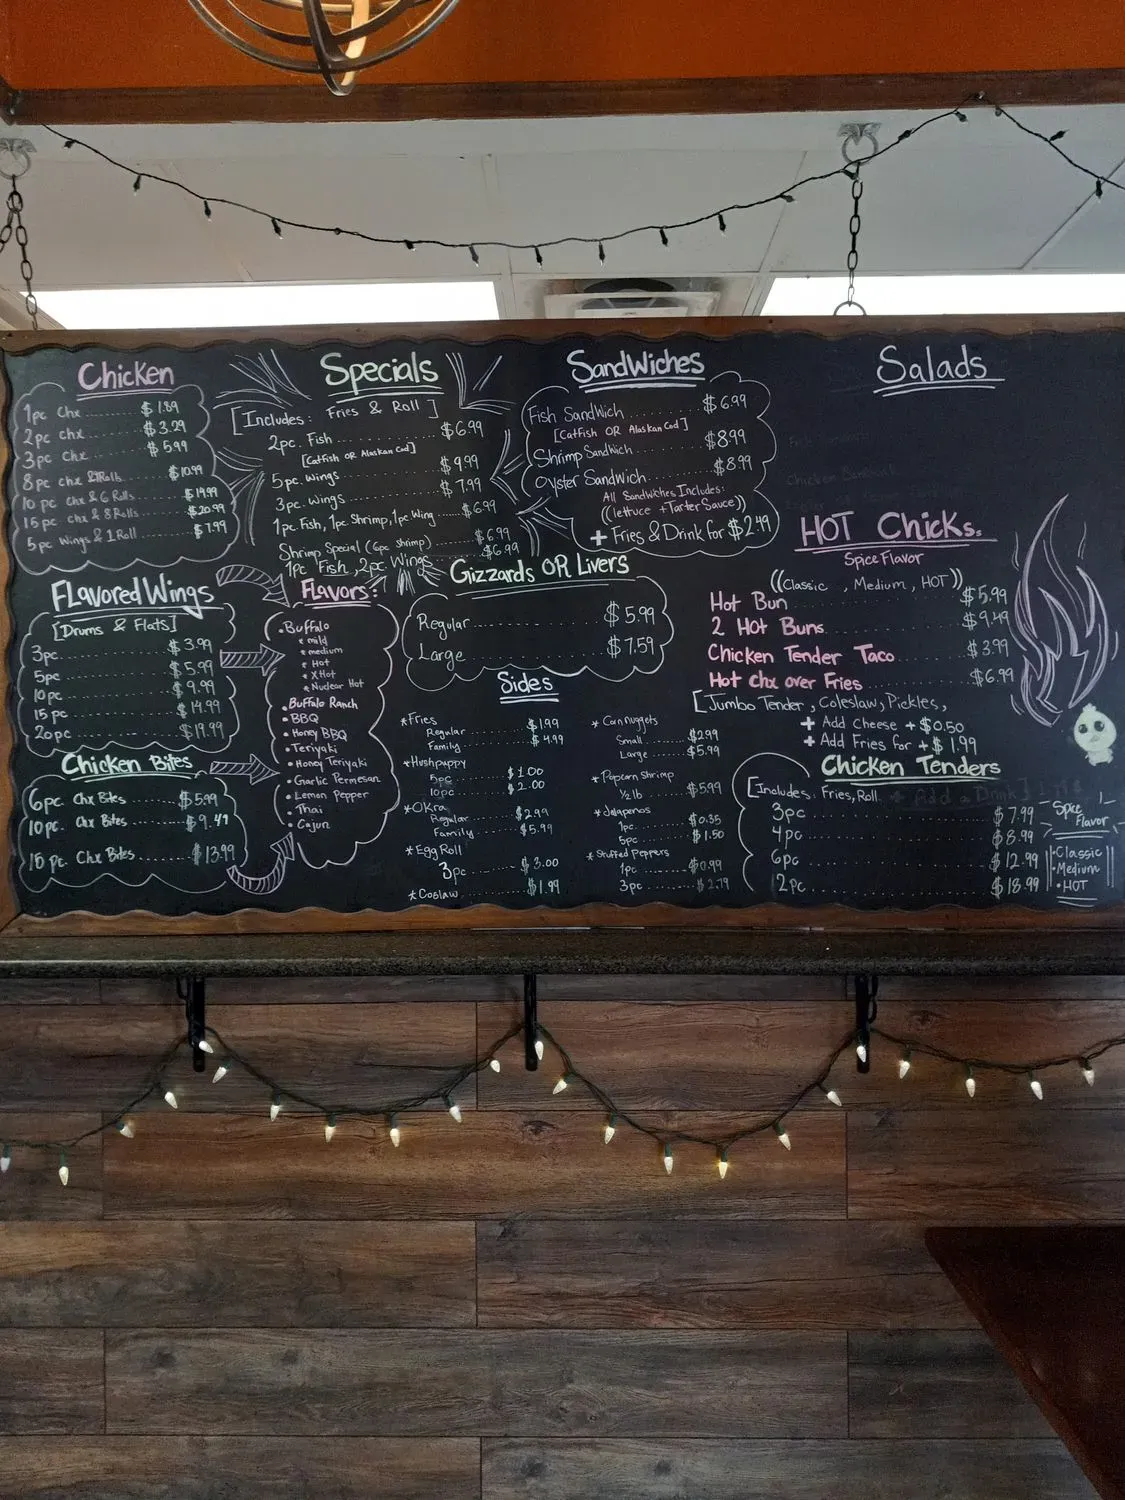 Chicken
1pc Chx ........ $1.89
2pc chx ........ $3.29
3pc Chx ........ $5.99
8pc chx & 4 Rolls ........ $10.99
10 pc Chx & 6 Rolls ........ $14.99
15 pc chx & 8 Rolls ........ $20.99
5pc Wings & 1 Roll ........ $7.99
Flavored Wings
[Drums & Flats]
3pc ........ $3.99
5pc ........ $5.99
10pc ........ $9.99
15 pc ........ $14.99
20pc ........ $19.99
Chicken Bites
6pc. Chx Bites ........ $5.99
10pc. Chx Bites ........ $9.49
15 pc. Chx Bites ........ $13.99
Specials
[Includes: Fries & Roll]
2pc. Fish ........ $6.99
[Catfish OR Alaskan Cod]
5pc wings ........ $9.99
3pc. Wings ........ $7.99
1pc Fish, 1pc Shrimp, 1pc Wing ........ $6.99
Shrimp Special (6pc shrimp) ........ $6.99
1pc Fish, 2pc Wings ........ $6.99
Flavors:
•Buffalo
* mild
* medium
* Hot
* XHot
* Nuclear Hot
•Buffalo Ranch
•BBQ
•Honey BBQ
•Teriyaki
•Honey Teriyaki
•Garlic Parmesan
•Lemon Pepper
•Thai
•Cajun
Sandwiches
Fish Sandwich ........ $6.99
[Catfish OR Alaskan Cod]
Shrimp Sandwich ........ $8.99
Oyster Sandwich ........ $8.99
All Sandwiches Includes:
((lettuce + Tarter Sauce))
+ Fries & Drink for $2.49
Gizzards OR Livers
Regular ........ $5.99
Large ........ $7.59
Sides
*Fries
Regular ........ $1.99
Family ........ $4.99
*Hushpuppy
5pc ........ $1.00
10pc ........ $2.00
*OKra
Regular ........ $2.99
Family ........ $5.99
*Egg Roll
3pc ........ $3.00
*Coslaw ........ $1.99
*Corn nuggets
Small ........ $2.99
Large ........ $5.99
*Popcorn Shrimp
1/2 lb ........ $5.99
*Jalapenos
1pc ........ $0.35
5pc ........ $1.50
*Stuffed Peppers
1pc ........ $0.99
3pc ........ $2.79
Salads
HOT Chicks.
Spice Flavor
((Classic, Medium, HOT))
Hot Bun ........ $5.99
2 Hot Buns ........ $9.49
Chicken Tender Taco ........ $3.99
Hot chx over Fries ........ $6.99
[Jumbo Tender, Coleslaw, Pickles,
+ Add Cheese + $0.50
+ Add Fries for + $1.99
Chicken Tenders
[Includes: Fries, Roll + Add a Drink]
3pc ........ $7.99
4pc ........ $8.99
6pc ........ $12.99
12pc ........ $18.99
Spice
Flavor
•Classic
•Medium
•HOT